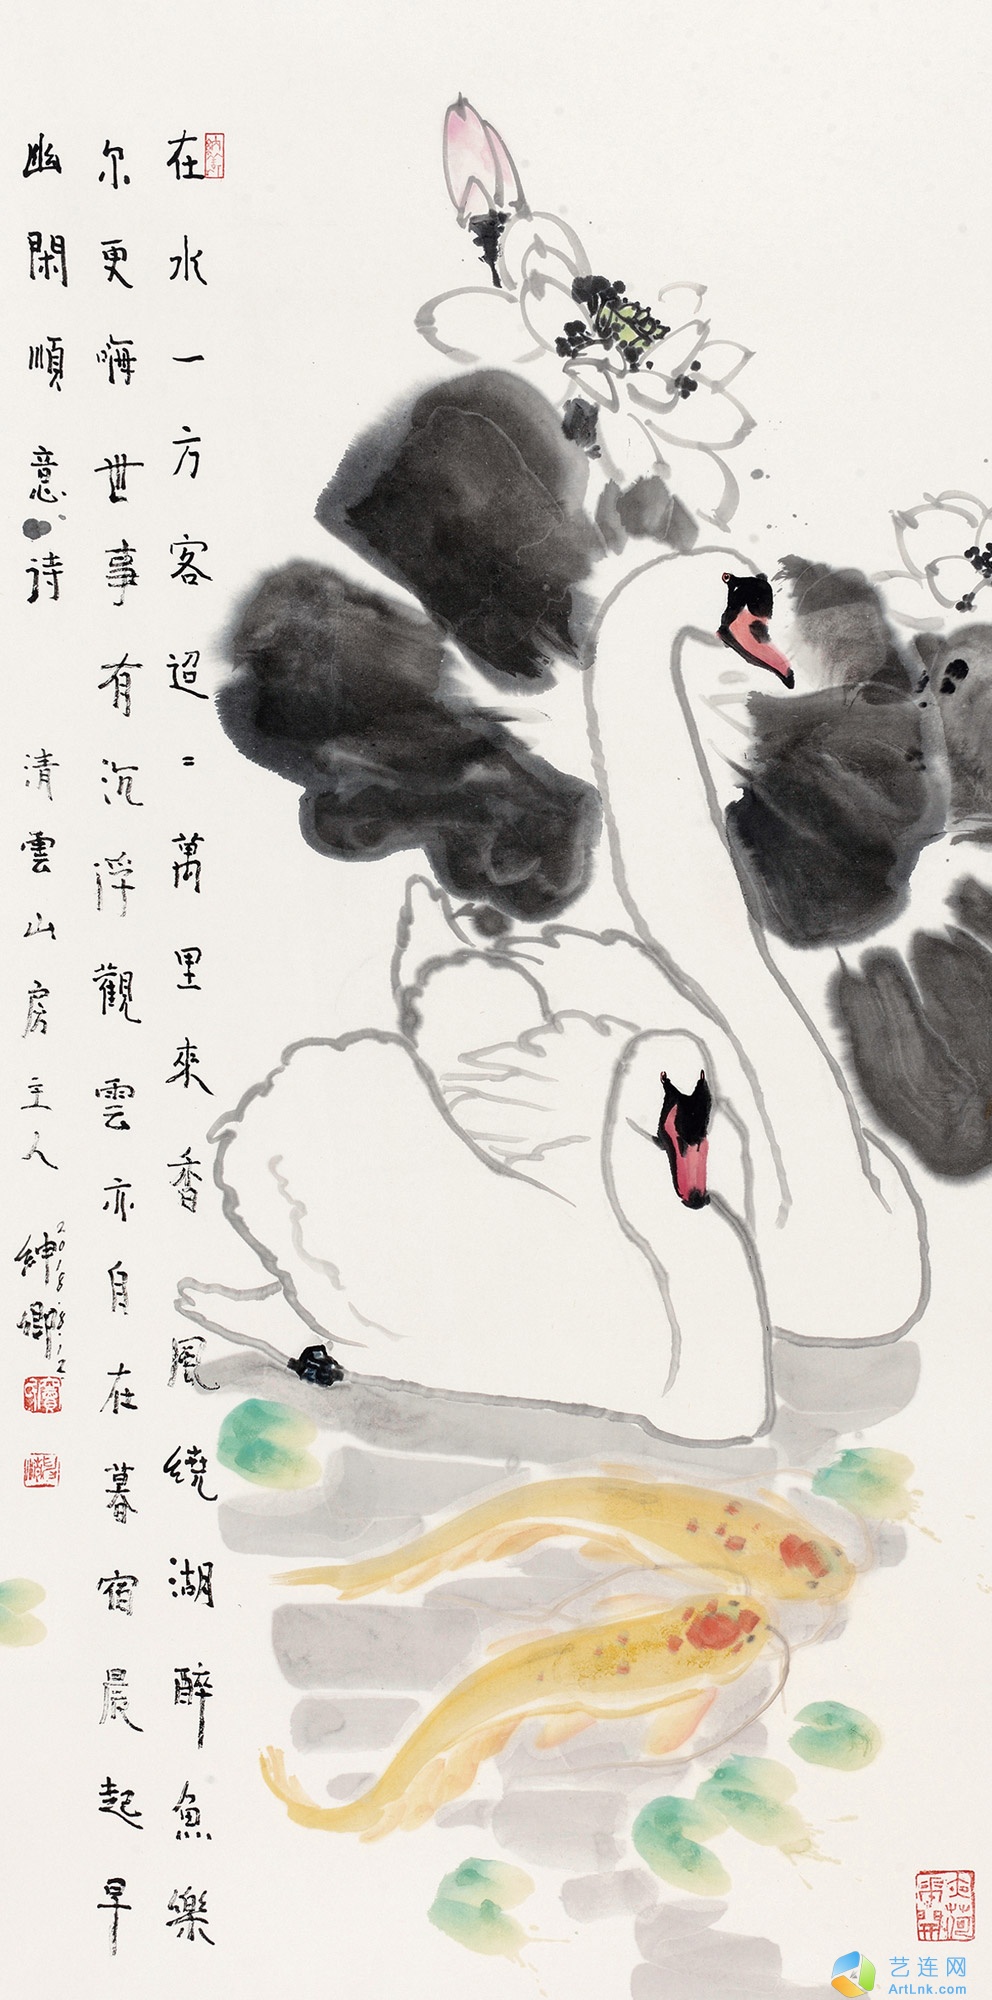 在水一方客迢〻萬里來香風繞湖醉魚樂
尔更嗨世事有沉浮觀雲亦自在暮宿晨起早
幽閑順意诗 清雲山房主人 紳卿
艺连网
ArtLnk.com